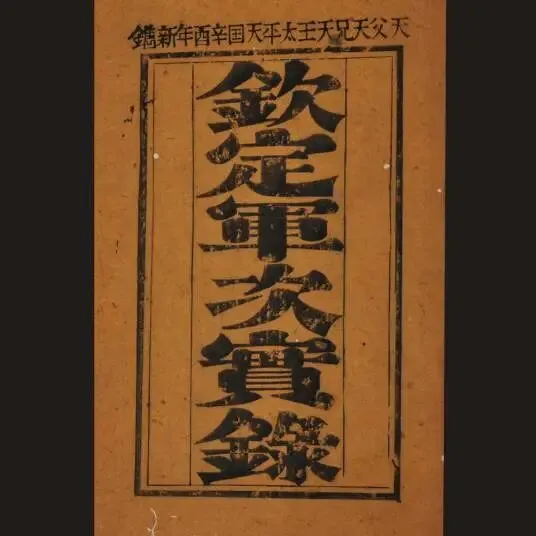 天父天兄天王太平天囯辛酉年新鐫
欽定軍次實錄